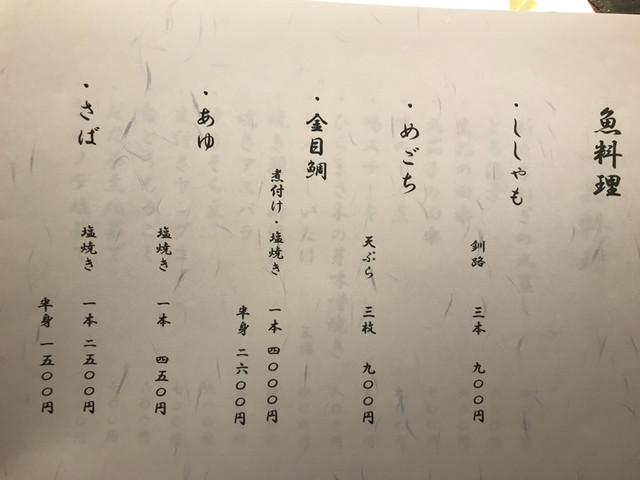 魚料理
・ししゃも
釧路 三本 九〇〇円
・めごち
天ぷら 三枚 九〇〇円
・金目鯛
煮付け・塩焼き 一本 四〇〇〇円
半身 二六〇〇円
・あゆ
塩焼き 一本 四五〇円
・さば
塩焼き 一本 二五〇〇円
半身 一五〇〇円